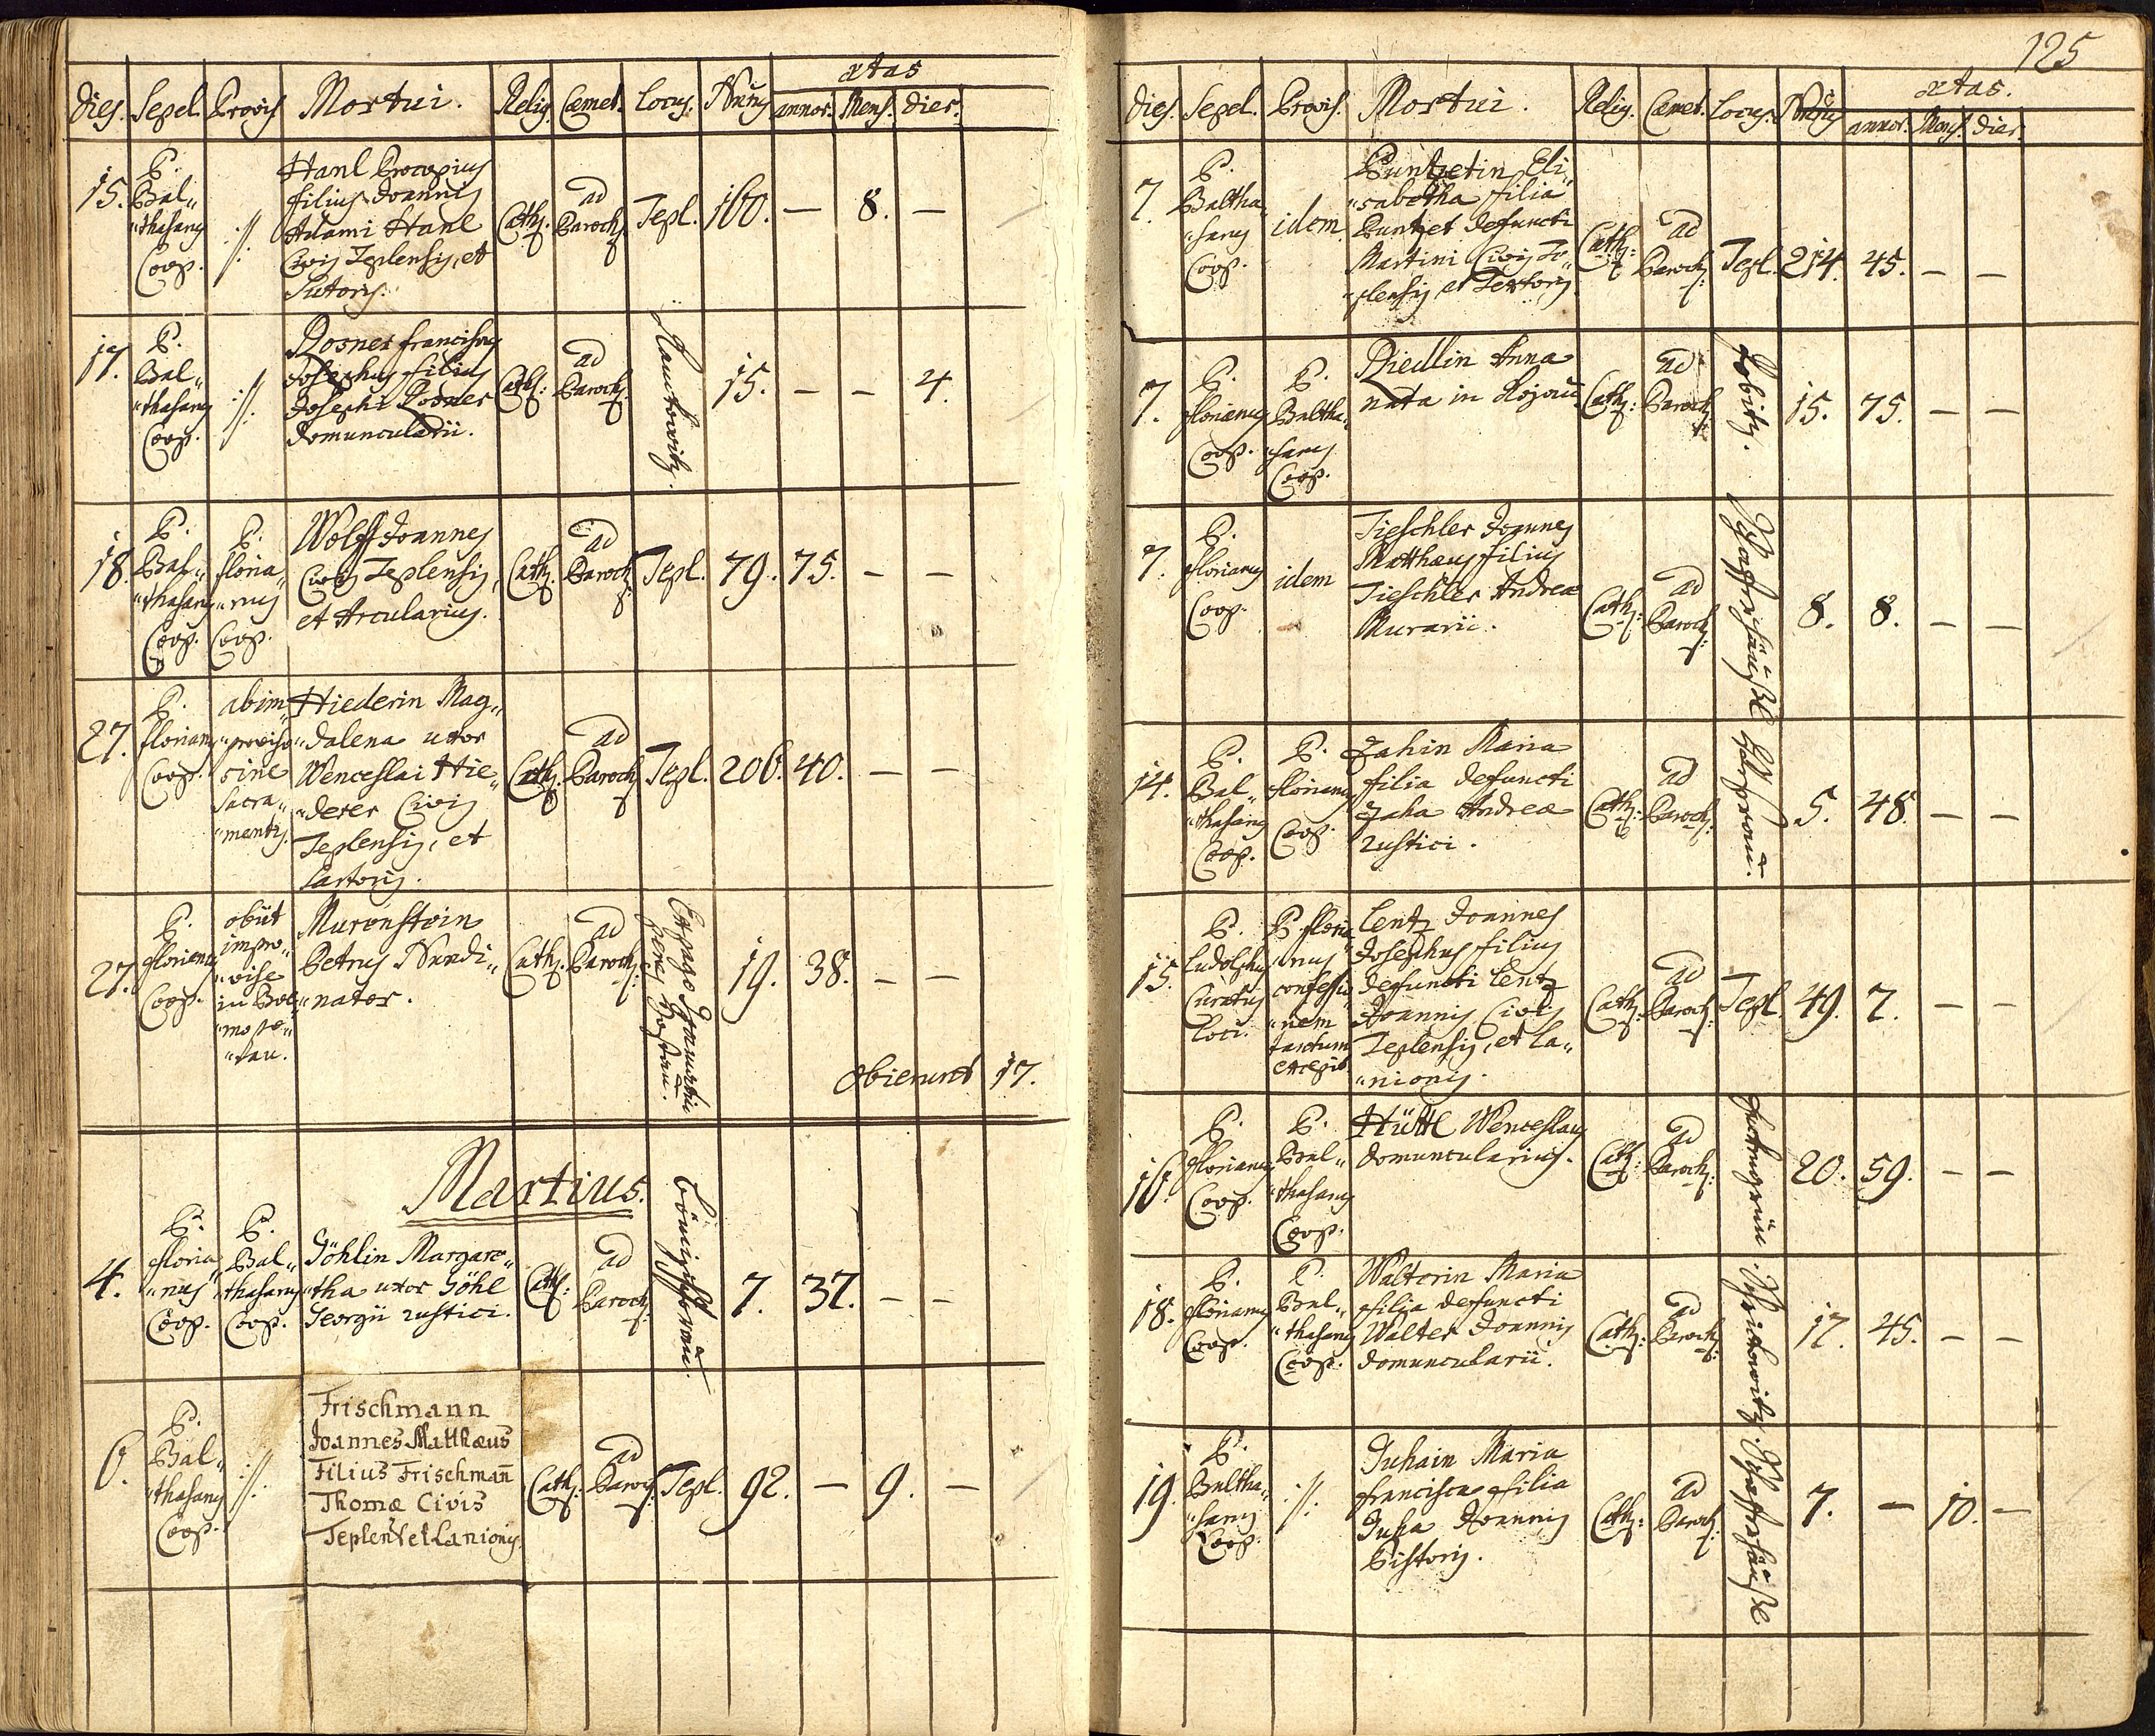 ætas
Dies. Sepel. Provis. Mortui. Relig. Cæmet. Locus. Nrus annor. Mens. dier.
15. P. Bal„ „thasarus Coop. :/:
Hanl Procopius
filius Joannis
Adami Hanl
Civis Teplensis, et
Sutoris.
Cath: ad Paroch: Tepl. 160. — 8. —
17. P. Bal„ „thasarus Coop. :/:
Rosner Franciscus
Josephus filius
Josephi Rosner
domuncularii.
Cath: ad Paroch: 15. — — 4.
18. P. Bal„ „thasarus Coop. P. Floria„ „nus Coop.
Wolff Joannes
Civis Teplensis,
et Arcularius.
Cath: ad Paroch: Tepl. 79. 75. — —
27. P. Florianus Coop. ab im„ „proviso sine Sacra„ „mentis.
Hiederin Mag„
„dalena uxor
Wenceslai Hie„
„derer Civis
Teplensis, et
Sartoris.
Cath: ad Paroch: Tepl. 206. 40. — —
27. P. Florianus Coop. obiit impro„ „vise
Murenstein
Petrus Nundi„
„nator.
Cath: ad Paroch: 19. 38. — —
Obierunt 17.
Martius.
4. P. Floria„ „nus Coop. P. Bal„ „thasarus Coop.
Göhlin Margare„
„tha uxor Göhl
Georgii rustici.
Cath: ad Paroch: 7. 37. — —
6. P. Bal„ „thasarus Coop. :/:
Frischmann
Joannes Matthæus
Filius Frischmañ
Thomæ Civis
Teplens et Lanionis.
Cath: ad Paroch: Tepl. 92. — 9. —
125
ætas.
Dies. Sepel. Provis. Mortui. Relig. Cæmet. Locus. Nrus annor. Mens. dier.
7. P. Baltha„ „sarus Coop. idem.
Puntzetin Eli„
„sabetha filia
Puntzet defuncti
Martini Civis Te„
„plensis et Textoris
Cath: ad Paroch: Tepl. 214. 45. — —
7. P. Florianus Coop. P. Baltha„ „sarus Coop.
Riedlin Anna
nata in
Cath: ad Paroch: 15. 75. — —
7. P. Florianus Coop. idem
Tieschler Joannes
Matthæus filius
Tieschler Andreæ
Murarii.
Cath: ad Paroch: 8. 8. — —
14. P. Bal„ „thasarus Coop. P. Florianus Coop.
Zahin Maria
filia defuncti
Zaha Andreæ
rustici.
Cath: ad Paroch: 5. 48. — —
15. P. Ludolphus Curatus Loci. P. Floria„ „nus confessio„ „nem tantum excepit.
Lentz Joannes
Josephus filius
defuncti Lentz
Joannis Civis
Teplensis, et La„
„nionis.
Cath: ad Paroch: Tepl. 49. 7. — —
16. P. Florianus Coop. P. Bal„ „thasarus Coop.
Hüttl Wenceslaus
domuncularius.
Cath: ad Paroch: 20. 59. — —
18. P. Florianus Coop. P. Bal„ „thasarus Coop.
Walterin Maria
filia defuncti
Walter Joannis
domuncularii.
Cath: ad Paroch: 17. 45. — —
19. P. Baltha„ „sarus Coop. :/:
Juhain Maria
Francisca filia
Juha Joannis
Pistoris.
Cath: ad Paroch: 7. — 10. —